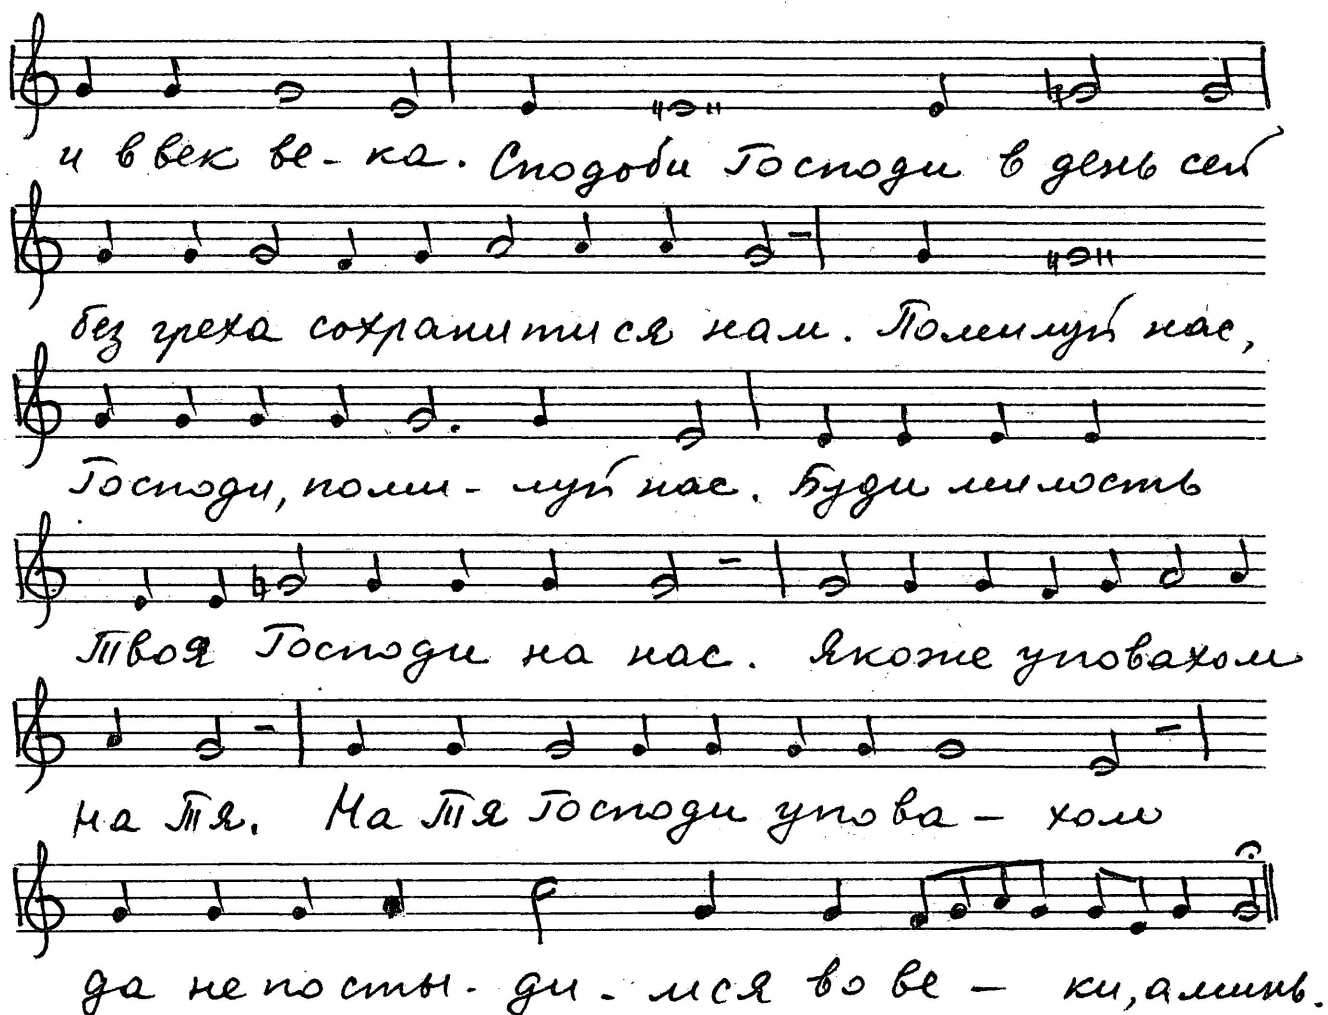 и в век ве - ка. Сподоби Господи в день сей
без греха сохранитися нам. Помилуй нас,
Господи, поми - луй нас. Буди милость
Твоя Господи на нас. Якоже уповахом
на Тя. На Тя Господи упова - хом
да не посты - ди - мся во ве - ки, аминь.